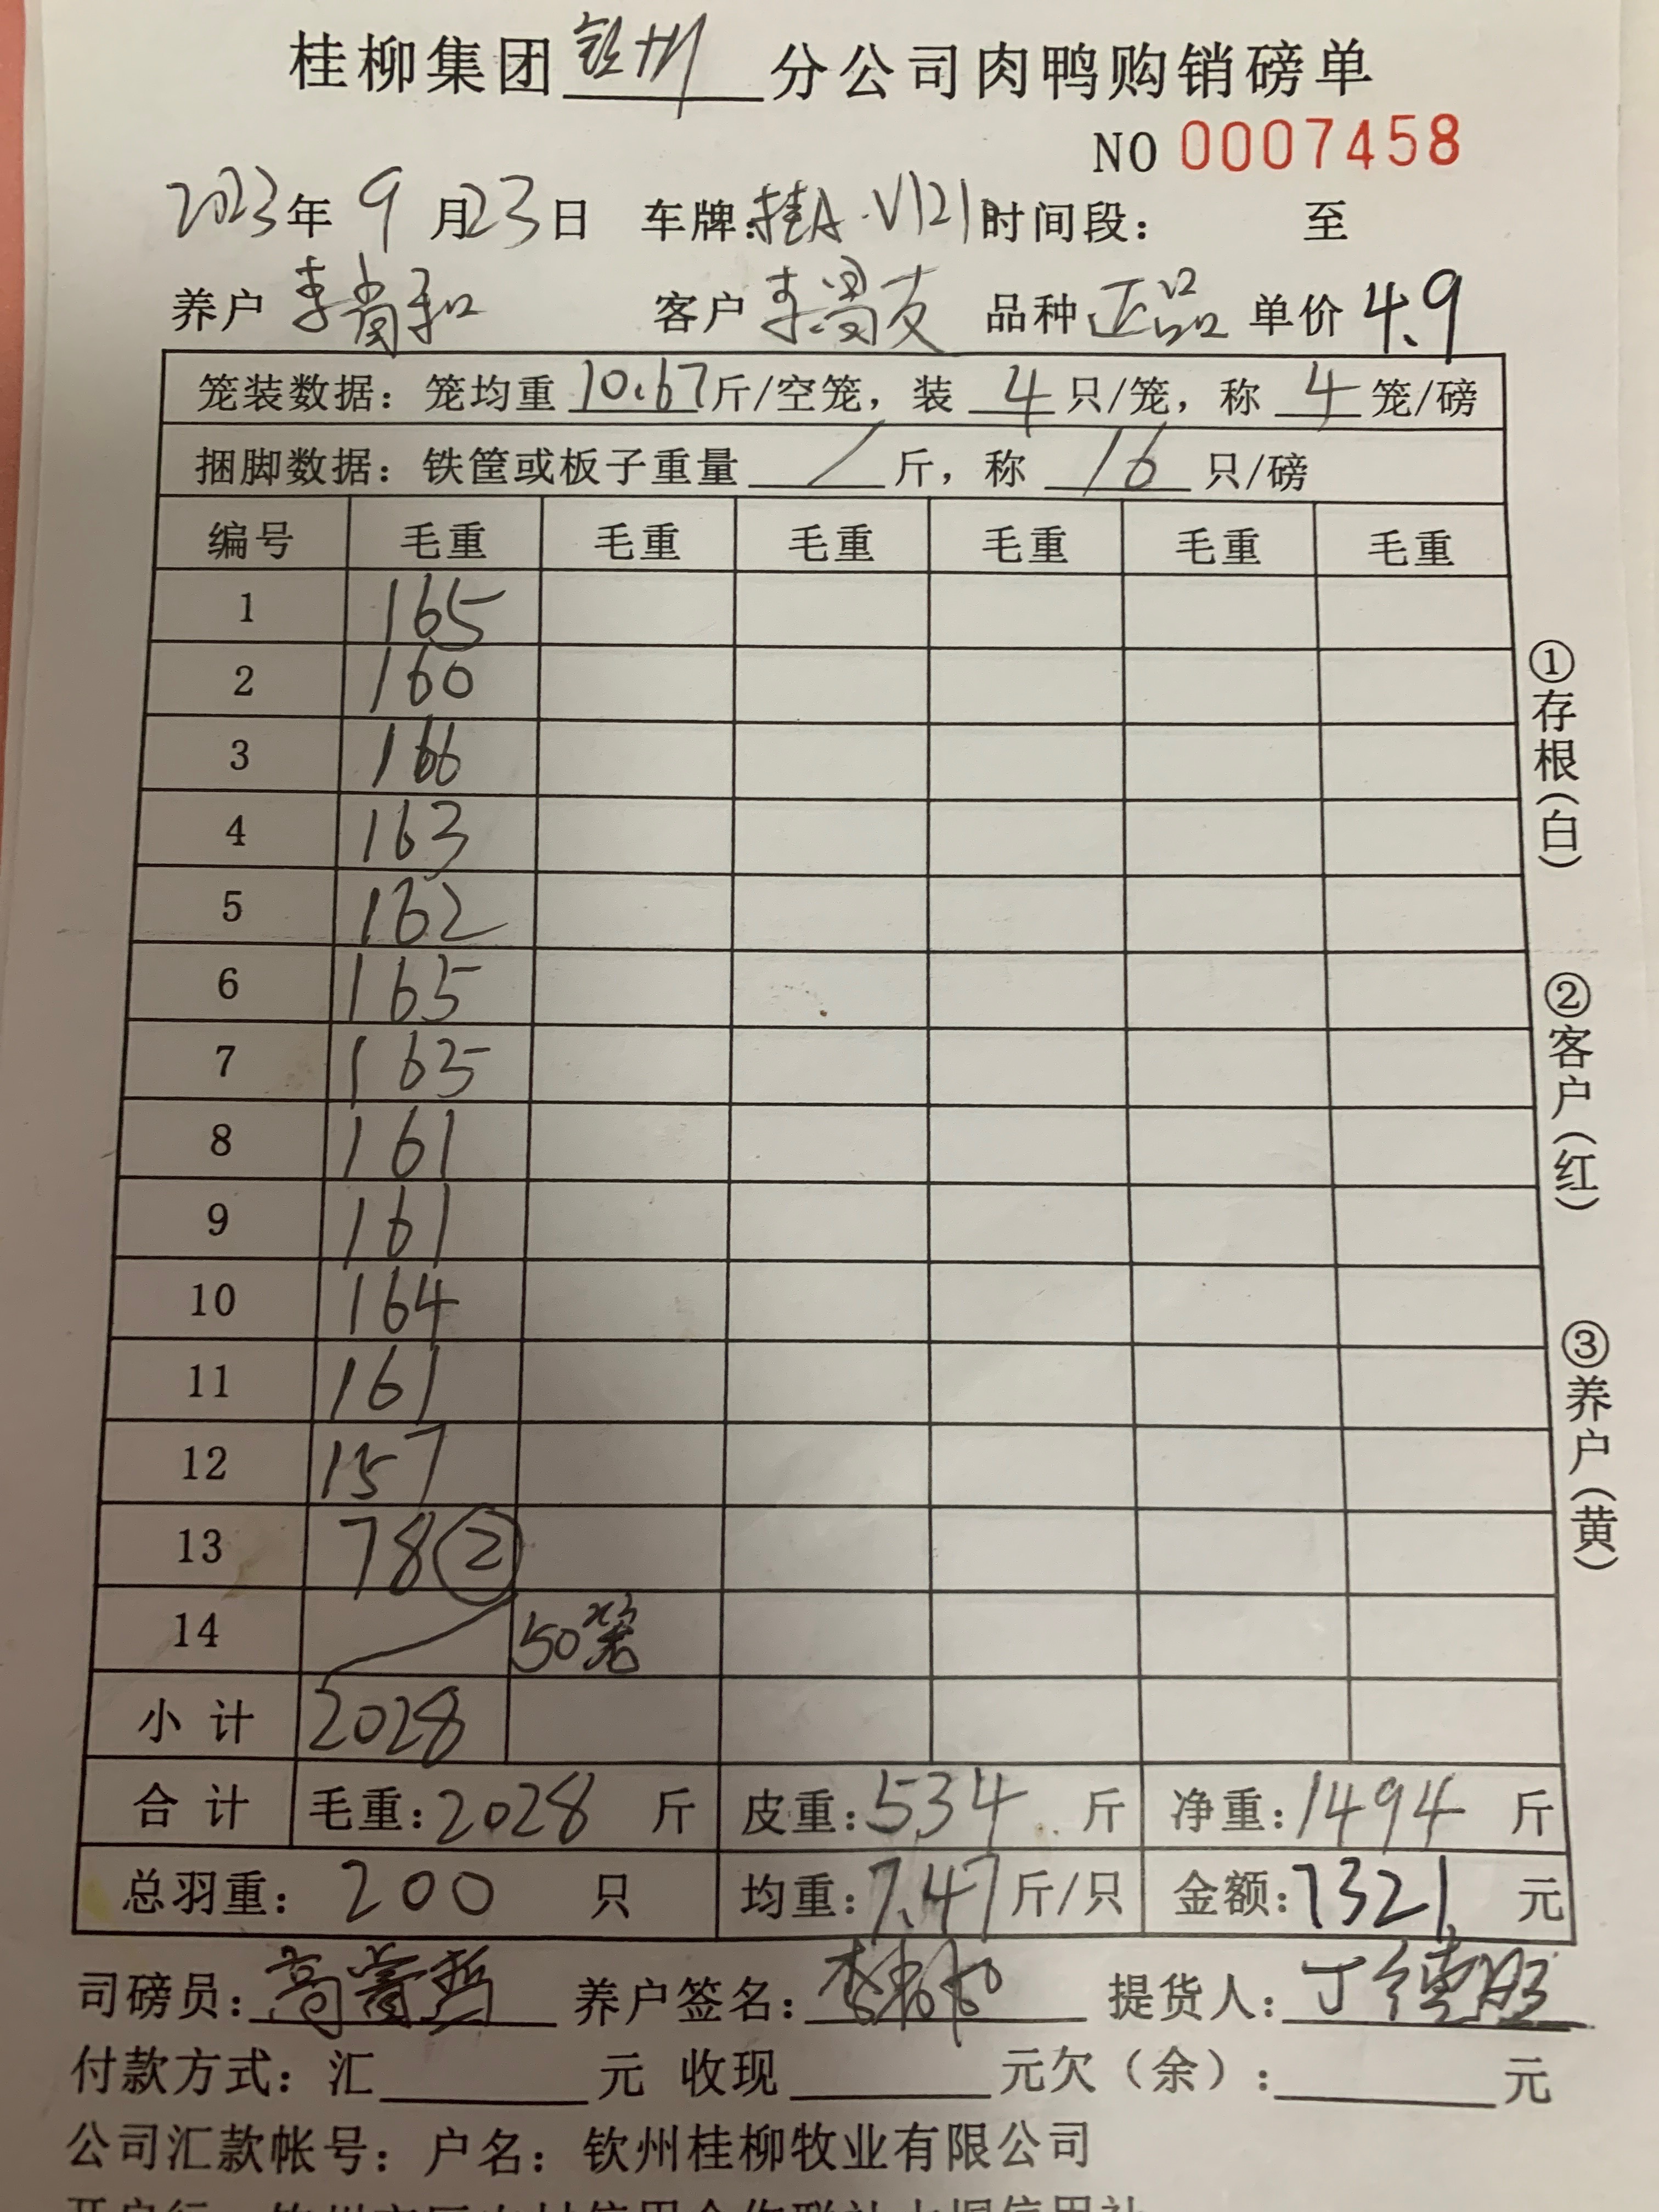 桂柳集团 钦州 分公司肉鸭购销磅单
NO 0007458
2023年 9 月23日 车牌:桂A·V121 时间段: 至
养户 李 和 客户 李 友 品种 正品 单价 4.9
笼装数据: 笼均重 10.67斤/空笼, 装 4 只/笼, 称 4 笼/磅
捆脚数据: 铁筐或板子重量 / 斤, 称 16 只/磅
编号 毛重 毛重 毛重 毛重 毛重 毛重
1 165
2 160
3 166
4 163
5 162
6 165
7 165
8 161
9 161
10 164
11 161
12 157
13 78②
14 50笼
小计 2028
合计 毛重:2028 斤 皮重:534 斤 净重:1494 斤
总羽重: 200 只 均重:7.47斤/只 金额:7321 元
司磅员: 养户签名: 提货人:丁德旺
付款方式: 汇 元 收现 元欠(余): 元
公司汇款帐号: 户名: 钦州桂柳牧业有限公司
①存根(白)
②客户(红)
③养户(黄)